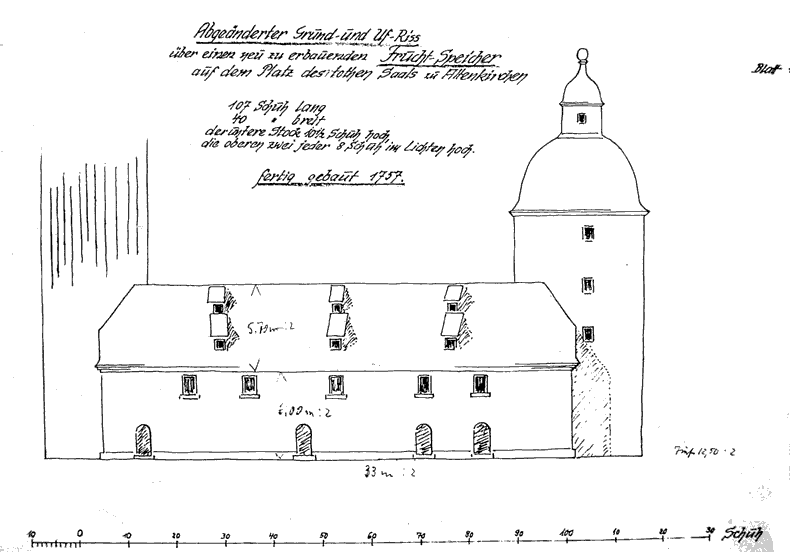 Abgeänderter Grund-und Uf-Riss
über einen neu zu erbauenden Frucht-Speicher
auf dem Platz des rothen Saals zu Altenkirchen
Blatt
107 Schuh Lang
40 " breit
der untere Stock 10½ Schuh hoch,
die oberen zwei jeder 8 Schuh im Lichten hoch.
fertig gebaut 1757.
m : 2
m : 2
33 m : 2
12,50 : 2
10 0 10 20 30 40 50 60 70 80 90 100 10 20 30 Schuh